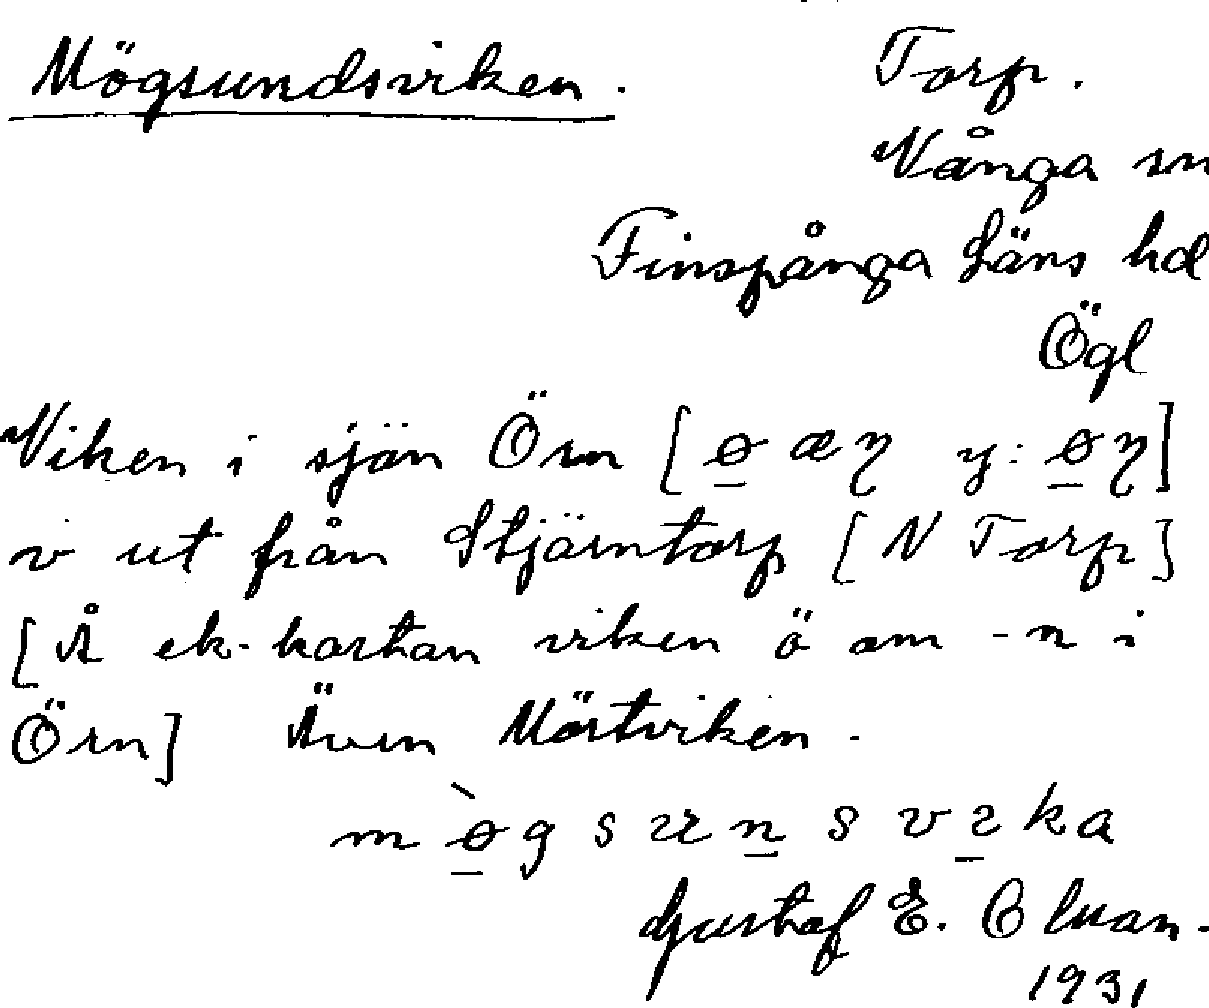 Mögsundsviken. Torp.
Vånga sn
Finspånga Läns hd
Ögl
Viken i sjön Örn [
v ut från Stjärntorp [N Torp]
[Å ek-kartan viken ö om -n i
Örn] Även Mörtviken.
Gustaf E.
1931